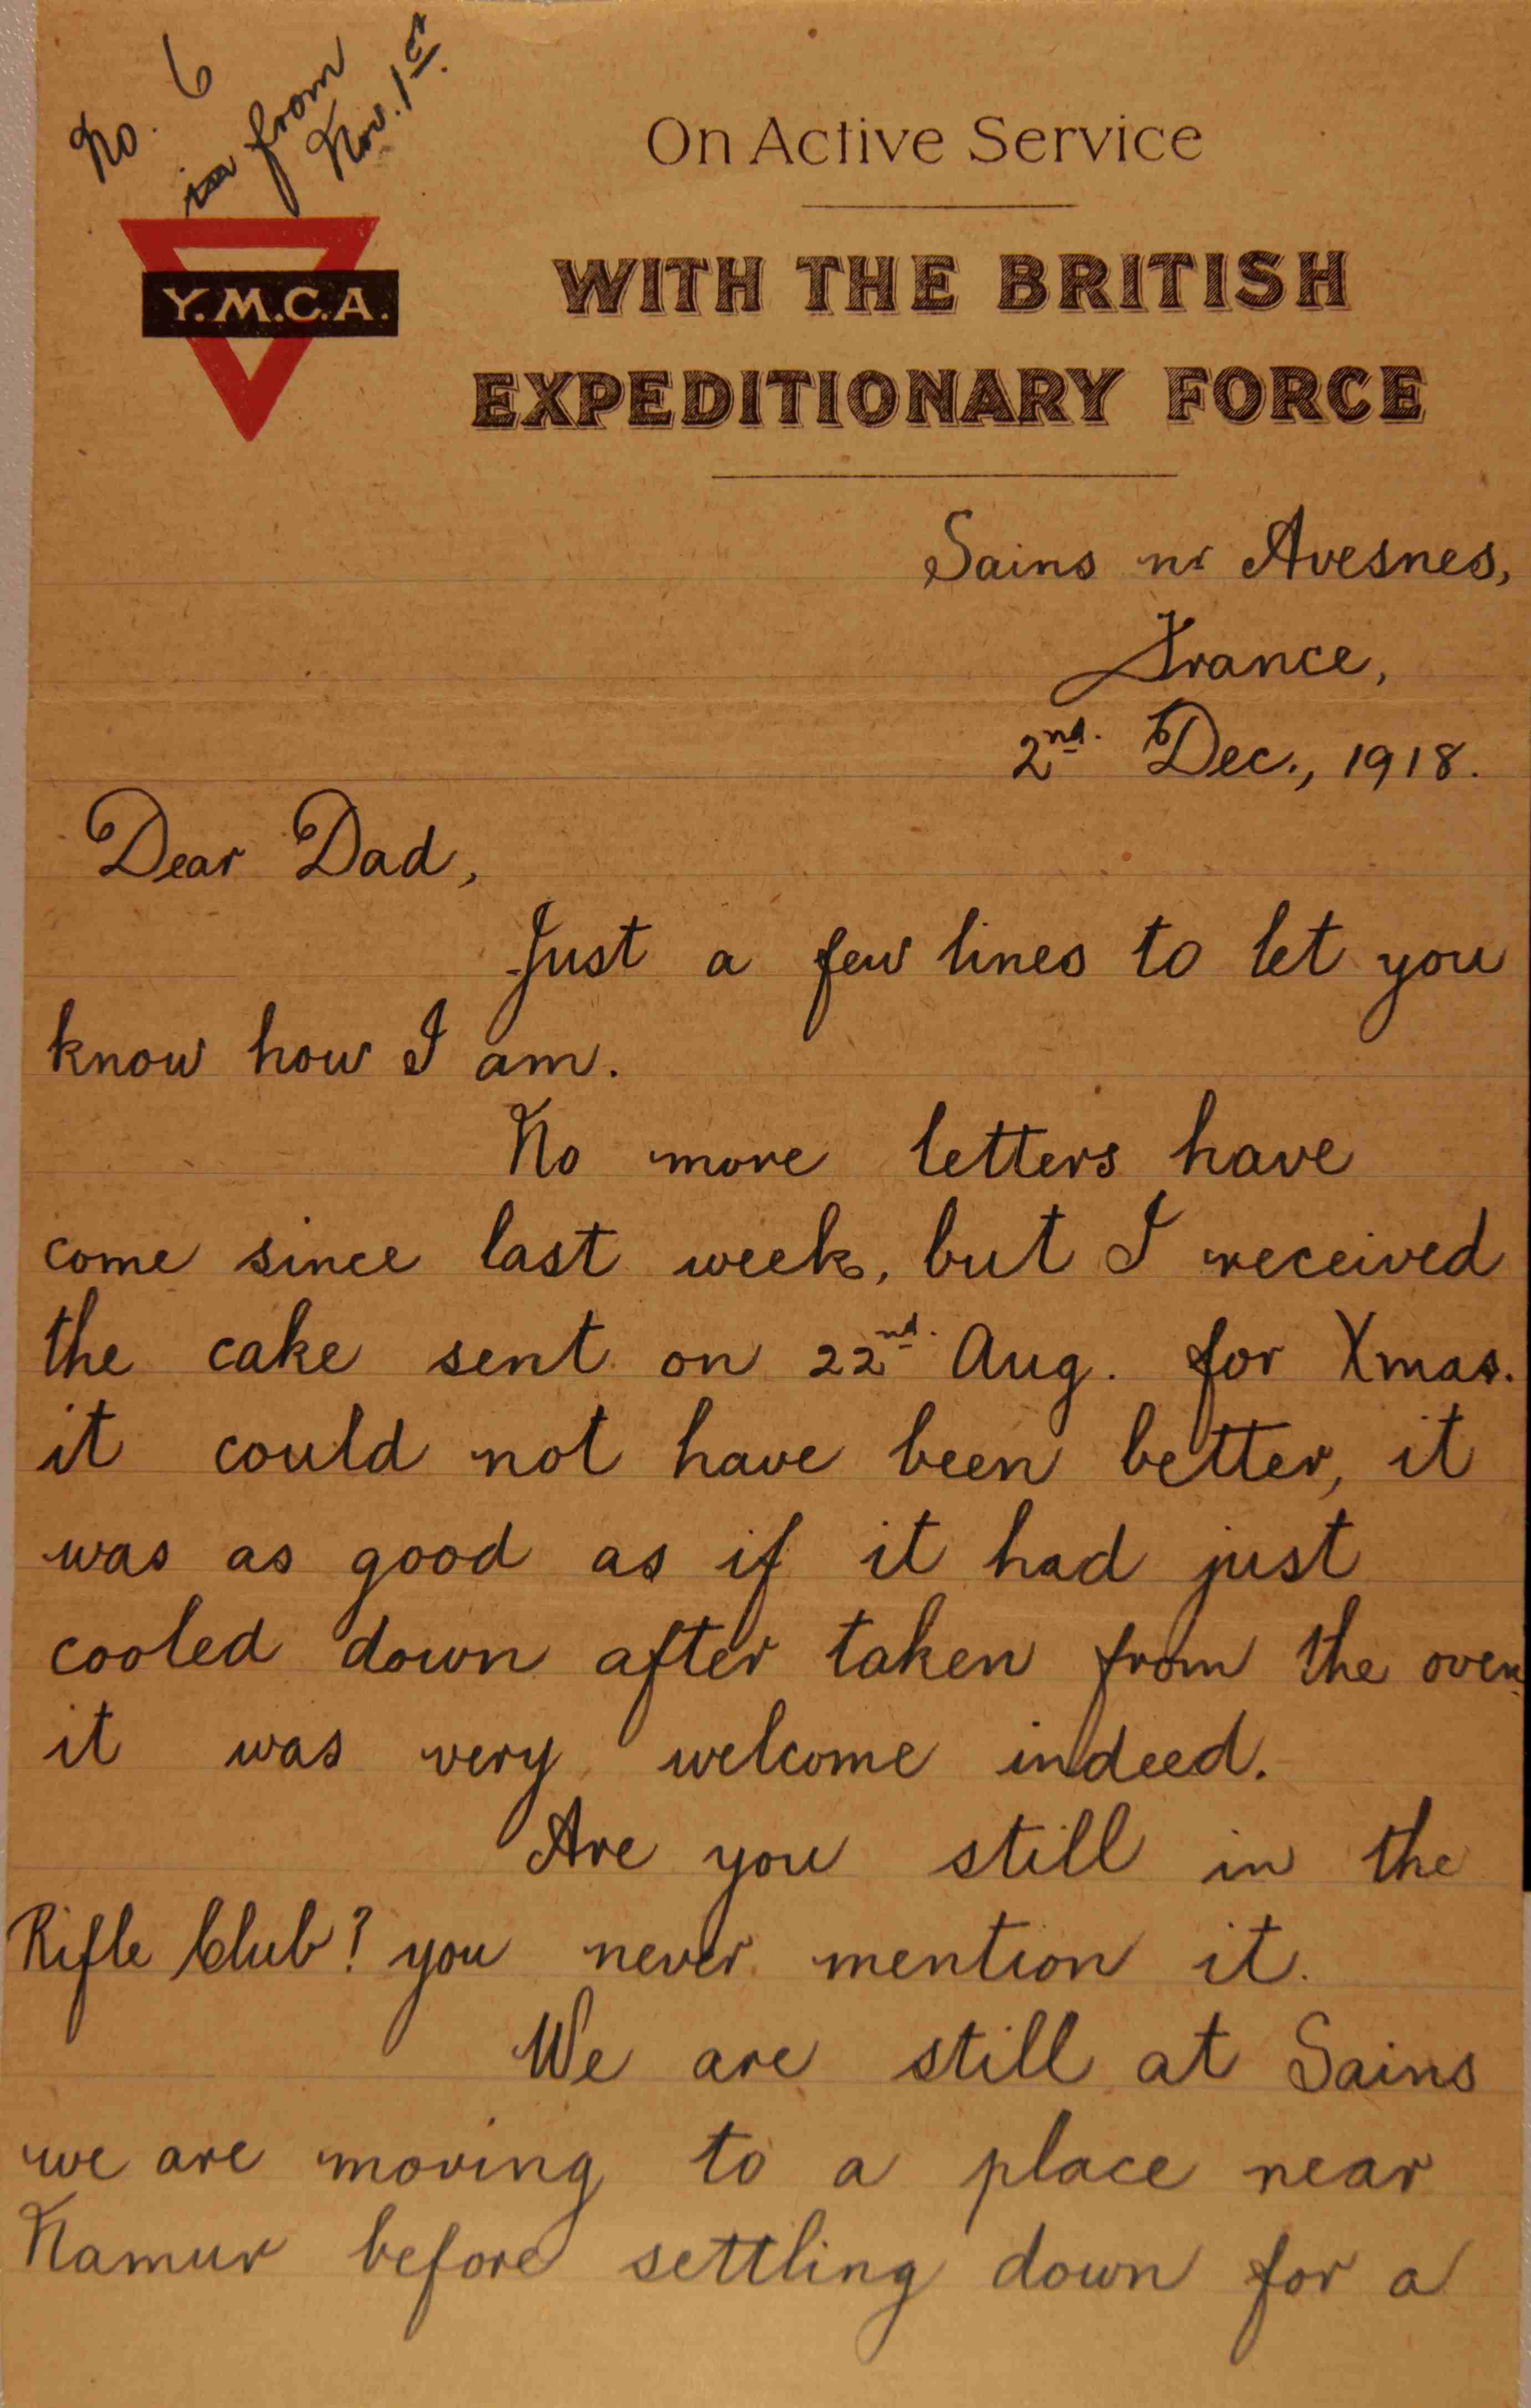 No. 6
from
Nov. 1st
Y.M.C.A.
On Active Service
WITH THE BRITISH
EXPEDITIONARY FORCE
Sains nr Avesnes,
France,
2nd. Dec., 1918.
Dear Dad,
Just a few lines to let you
know how I am.
No more letters have
come since last week, but I received
the cake sent on 22nd. Aug. for Xmas.
it could not have been better, it
was as good as if it had just
cooled down after taken from the oven.
it was very welcome indeed.
Are you still in the
Rifle Club? you never mention it.
We are still at Sains
we are moving to a place near
Namur before settling down for a